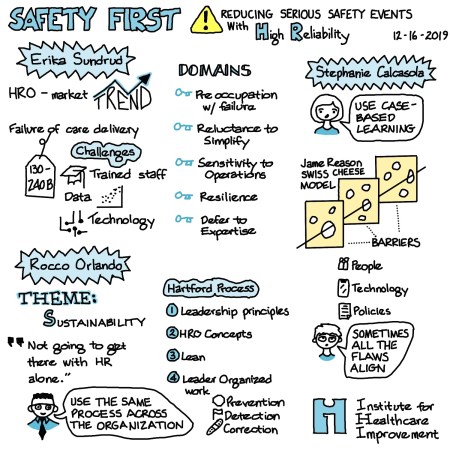 SAFETY FIRST
REDUCING SERIOUS SAFETY EVENTS
With High Reliability
12-16-2019
Erika Sundrud
HRO - market TREND
Failure of care delivery
130-
240B
Challenges
Trained staff
Data
Technology
DOMAINS
Pre occupation
w/ failure
Reluctance to
Simplify
Sensitivity to
Operations
Resilience
Defer to
Expertise
Stephanie Calcasola
USE CASE-
BASED
LEARNING
Jame Reason
SWISS CHEESE
MODEL
BARRIERS
People
Technology
Policies
SOMETIMES
ALL THE
FLAWS
ALIGN
Rocco Orlando
THEME:
SUSTAINABILITY
"Not going to get
there with HR
alone."
USE THE SAME
PROCESS ACROSS
THE ORGANIZATION
Hartford Process
1 Leadership principles
2 HRO Concepts
3 Lean
4 Leader Organized
work
Prevention
Detection
Correction
Institute for
Healthcare
Improvement